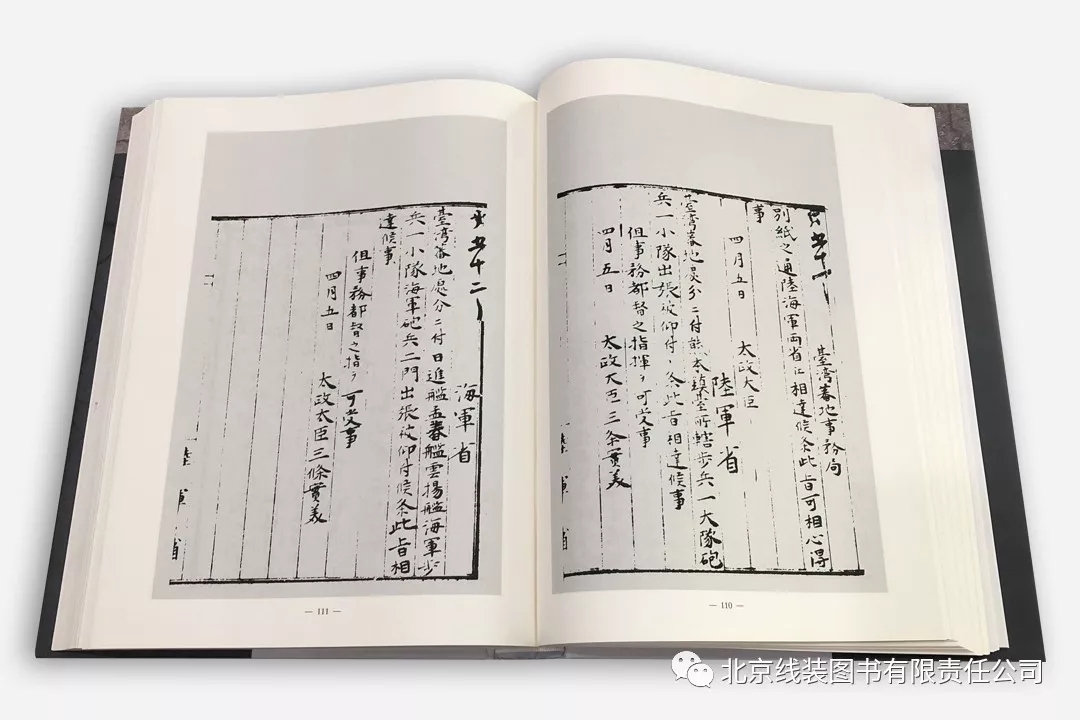 臺灣蕃地事務局
別紙之通陸海軍両省江相達候条此旨可相心得
事
四月五日
太政大臣
陸軍省
臺湾蕃地處分ニ付熊本鎮臺所轄歩兵一大隊砲
兵一小隊出張被仰付候条此旨相達候事
但事務都督之指揮ヲ可受事
四月五日 太政大臣三条實美
— 110 —
海軍省
臺湾蕃地處分ニ付日進艦孟春艦雲揚艦海軍歩
兵一小隊海軍砲兵二門出張被仰付候条此旨相
達候事
但事務都督之指ヲ可受事
四月五日
太政大臣三條實美
陸軍省
— 111 —
北京线装图书有限责任公司